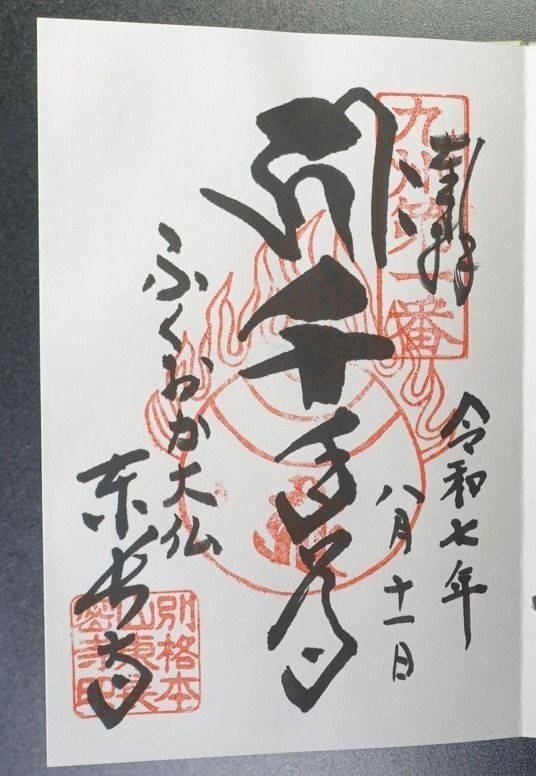 九州第一番
奉拝
令和七年
八月十一日
千手尊
ふくおか大仏
東長寺
別格本
山東長
密寺印